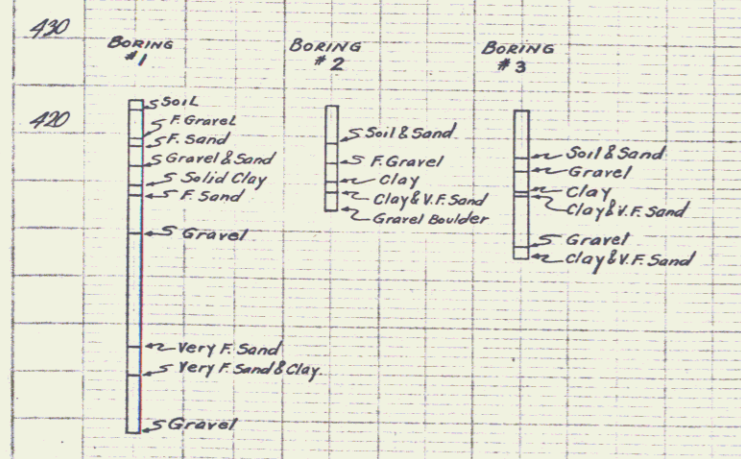 430
420
BORING
#1
Soil
F. Gravel
F. Sand
Gravel & Sand
Solid Clay
F. Sand
Gravel
Very F. Sand
Very F. Sand & Clay.
Gravel
BORING
#2
Soil & Sand
F. Gravel
Clay
Clay & V.F. Sand
Gravel Boulder
BORING
#3
Soil & Sand
Gravel
Clay
Clay & V.F. Sand
Gravel
Clay & V.F. Sand